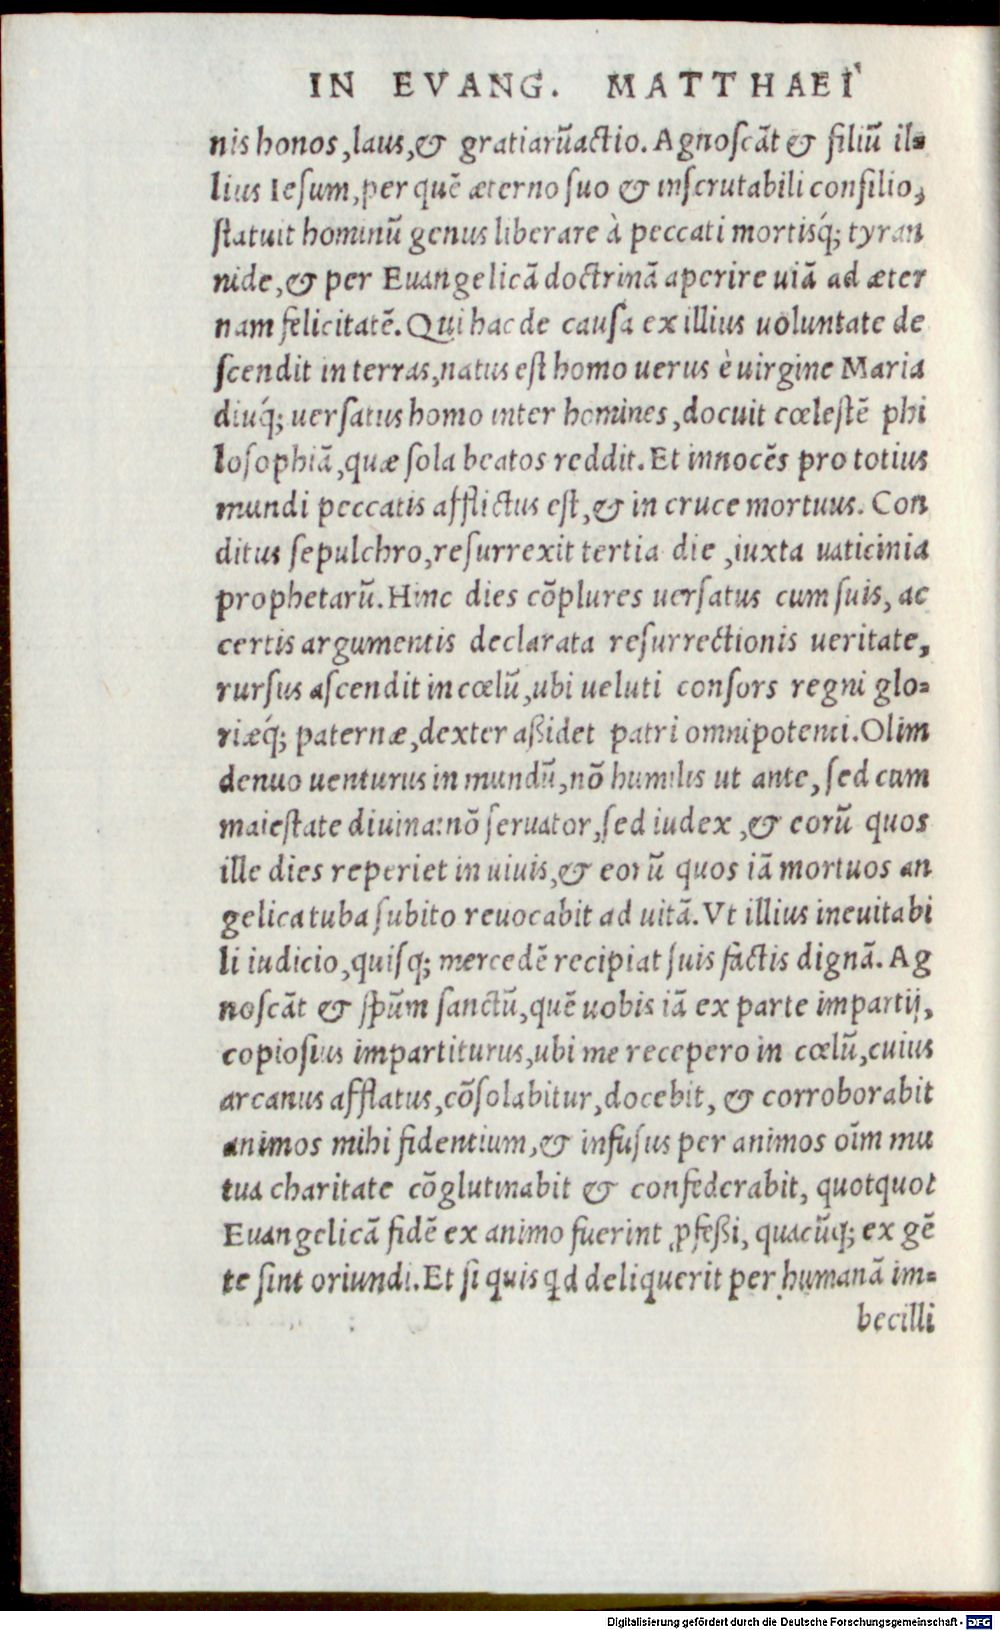 IN EVANG. MATTHAEI
nis honos, laus, & gratiarũactio. Agnoscãt & filiũ il-
lius Iesum, per quẽ æterno suo & inscrutabili consilio,
statuit hominũ genus liberare à peccati mortisq́; tyran
nide, & per Euangelicã doctrinã aperire uiã ad æter
nam felicitatẽ. Qui hac de causa ex illius uoluntate de
scendit in terras, natus est homo uerus è uirgine Maria
diuq́; uersatus homo inter homines, docuit cœlestẽ phi
losophiã, quæ sola beatos reddit. Et innocẽs pro totius
mundi peccatis afflictus est, & in cruce mortuus. Con
ditus sepulchro, resurrexit tertia die, iuxta uaticinia
prophetarũ. Hinc dies cõplures uersatus cum suis, ac
certis argumentis declarata resurrectionis ueritate,
rursus ascendit in cœlũ, ubi ueluti consors regni glo-
riæq́; paternæ, dexter aßidet patri omnipotenti. Olim
denuo uenturus in mundũ, nõ humilis ut ante, sed cum
maiestate diuina: nõ seruator, sed iudex, & eorũ quos
ille dies reperiet in uiuis, & eorũ quos iã mortuos an
gelica tuba subito reuocabit ad uitã. Vt illius ineuitabi
li iudicio, quisq; mercedẽ recipiat suis factis dignã. Ag
noscãt & sp̃um sanctũ, quẽ uobis iã ex parte impartij,
copiosius impartiturus, ubi me recepero in cœlũ, cuius
arcanus afflatus, cõsolabitur, docebit, & corroborabit
animos mihi fidentium, & infusus per animos oĩm mu
tua charitate cõglutinabit & confederabit, quotquot
Euangelicã fidẽ ex animo fuerint ꝓfeßi, quacũq; ex gẽ
te sint oriundi. Et si quis qd deliquerit per humanã im-
becilli
Digitalisierung gefördert durch die Deutsche Forschungsgemeinschaft - DFG